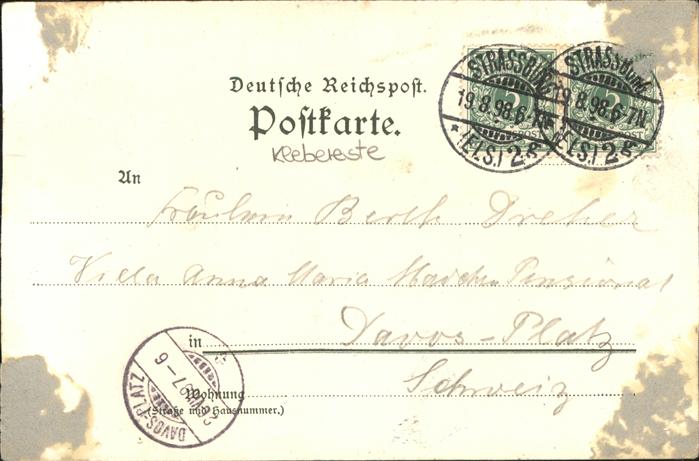 Deutsche Reichspost.
Postkarte.
Klebereste
An
Fräulein Berth Dreher
Villa Anna Maria Mädchen Pensionat
in Davos-Platz
Schweiz
Wohnung
(Straße und Hausnummer.)
STRASSBURG
19.8.98.6-7N.
*(ELS.) 2 g
STRASSBURG
19.8.98.6-7N.
(ELS.) 2 g
DAVOS-PLATZ